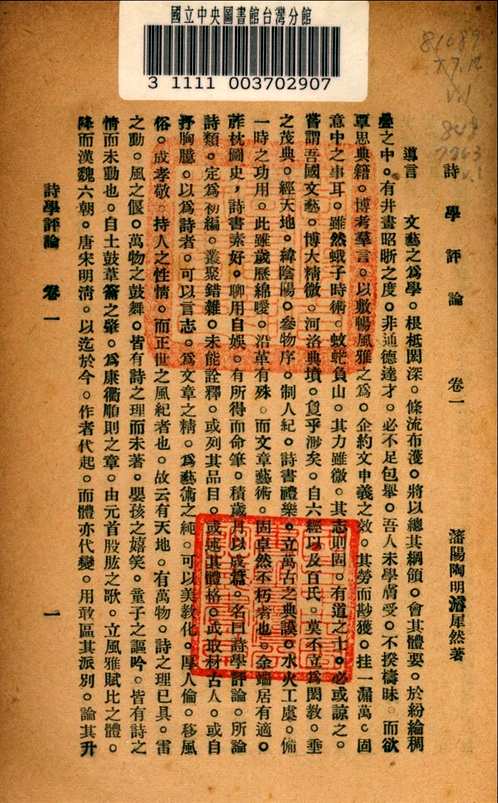 國立中央圖書館台灣分館
3 1111 003702907
詩學評論 卷一
瀋陽陶明濬犀然著
導言 文藝之為學。根柢閎深。條流布濩。將以總其綱領。會其體要。於紛綸稠
疊之中。有井晝昭晰之度。非通德達才。必不足包舉。吾人末學膚受。不揆檮昧。而欲
覃思典籍。博考羣言。以敷暢風雅之為。企約文申義之效。其勞而尠獲。挂一漏萬。固
意中之事耳。雖然蛾子時術。蚊虻負山。其力雖微。其志則固。有道之士。必或諒之。
嘗謂吾國文藝。博大精微。河洛典墳。夐乎渺矣。自六經以及百氏。莫不立為閎教。垂
之茂典。經天地。緯陰陽。參物序。制人紀。詩書禮樂。立萬古之典謨。水火工虞。備
一時之功用。此雖歲歷綿曖。沿革有殊。而文章藝術。固卓然不朽者也。余端居有適。
葄枕圖史。詩書素好。聊用自娛。有所得而命筆。積歲月以成篇。名曰詩學評論。所論
詩類。定為初編。叢聚錯雜。未能詮釋。或列其品目。或述其體格。或取材古人。或自
抒胸臆。以為詩者。可以言志。為文章之精。為藝術之純。可以美教化。厚人倫。移風
俗。成孝敬。持人之性情。而正世之風紀者也。故云有天地。有萬物。詩之理已具。雷
之動。風之偃。萬物之鼓舞。皆有詩之理而未著。嬰孩之嬉笑。童子之謳吟。皆有詩之
情而未動也。自土鼓葦籥之肇。為康衢順則之章。由元首股肱之歌。立風雅賦比之體。
降而漢魏六朝。唐宋明清。以迄於今。作者代起。而體亦代變。用敢區其派別。論其升
詩學評論 卷一 一